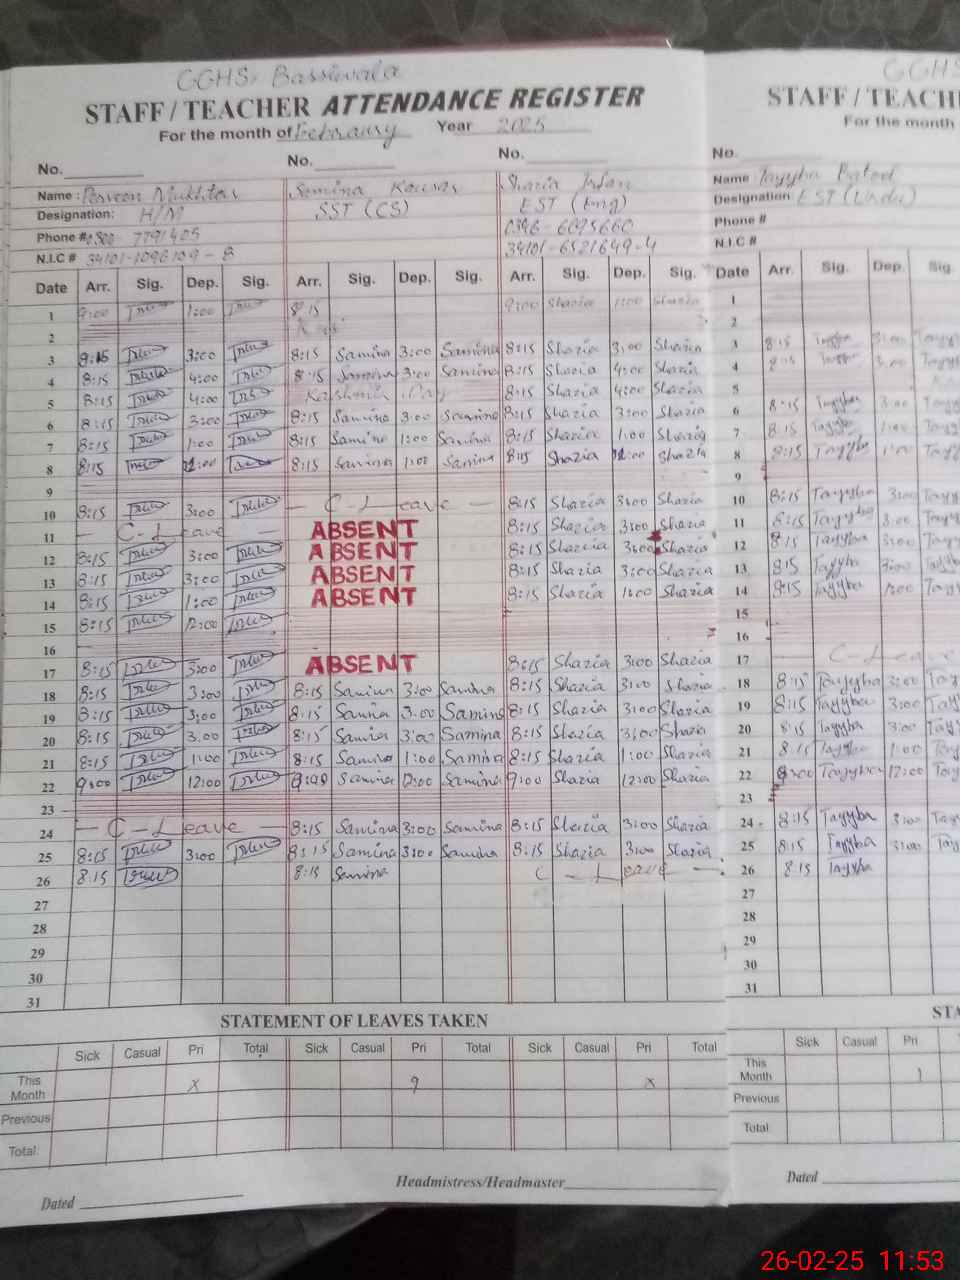 GGHS Bassiwala
STAFF / TEACHER ATTENDANCE REGISTER
For the month of February Year 2025
No. No. No.
Name : Perveen Mukhtar Samina Kausar Shazia Irfan
Designation: H/M SST (CS) EST (Eng)
Phone # 0300-7791405 0346-6095660
N.I.C # 34101-1096109-8 34101-6521649-4
Date Arr. Sig. Dep. Sig. Arr. Sig. Dep. Sig. Arr. Sig. Dep. Sig.
1 9:00 1:00 8:15 9:00 Shazia 1:00 Shazia
2
3 9:15 3:00 8:15 Samina 3:00 Samina 8:15 Shazia 3:00 Shazia
4 8:15 4:00 8:15 Samina 3:00 Samina 8:15 Shazia 4:00 Shazia
5 8:15 4:00 Kashmir Day 8:15 Shazia 4:00 Shazia
6 8:15 3:00 8:15 Samina 3:00 Samina 8:15 Shazia 3:00 Shazia
7 8:15 1:00 8:15 Samina 1:00 Samina 8:15 Shazia 1:00 Shazia
8 8:15 8:15 Samina 1:00 Samina 8:15 Shazia Shazia
9
10 8:15 3:00 - C - Leave - 8:15 Shazia 3:00 Shazia
11 - C - Leave - ABSENT 8:15 Shazia 3:00 Shazia
12 8:15 3:00 ABSENT 8:15 Shazia 3:00 Shazia
13 8:15 3:00 ABSENT 8:15 Shazia 3:00 Shazia
14 8:15 1:00 ABSENT 8:15 Shazia 1:00 Shazia
15 8:15 12:00
16
17 8:15 3:00 ABSENT 8:15 Shazia 3:00 Shazia
18 8:15 3:00 8:15 Samina 3:00 Samina 8:15 Shazia 3:00 Shazia
19 8:15 3:00 8:15 Samina 3:00 Samina 8:15 Shazia 3:00 Shazia
20 8:15 3:00 8:15 Samina 3:00 Samina 8:15 Shazia 3:00 Shazia
21 8:15 1:00 8:15 Samina 1:00 Samina 8:15 Shazia 1:00 Shazia
22 9:00 12:00 9:00 Samina 12:00 Samina 9:00 Shazia 12:00 Shazia
23
24 - C - Leave - 8:15 Samina 3:00 Samina 8:15 Shazia 3:00 Shazia
25 8:15 3:00 8:15 Samina 3:00 Samina 8:15 Shazia 3:00 Shazia
26 8:15 8:15 Samina C - Leave -
27
28
29
30
31
STATEMENT OF LEAVES TAKEN
Sick Casual Pri Total Sick Casual Pri Total Sick Casual Pri Total
This Month x 9 x
Previous
Total
Dated Headmistress/Headmaster
GGHS
STAFF / TEACH
For the month
No.
Name Tayyba Batool
Designation EST (Urdu)
Phone #
N.I.C #
Date Arr. Sig. Dep. Sig.
1
2
3 8:15 Tayyba 3:00
4 8:15 Tayyba 3:00
5
6 8:15 Tayyba 3:00
7 8:15 Tayyba 1:00
8 8:15 Tayyba 1:00
9
10 8:15 Tayyba 3:00
11 8:15 Tayyba 3:00
12 8:15 Tayyba 3:00
13 8:15 Tayyba 3:00
14 8:15 Tayyba 1:00
15
16
17 - C - Leave
18 8:15 Tayyba 3:00
19 8:15 Tayyba 3:00
20 8:15 Tayyba 3:00
21 8:15 Tayyba 1:00
22 9:00 Tayyba 12:00
23
24 8:15 Tayyba 3:00
25 8:15 Tayyba 3:00
26 8:15 Tayyba
27
28
29
30
31
STA
Sick Casual Pri
This Month 1
Previous
Total
Dated
26-02-25 11:53